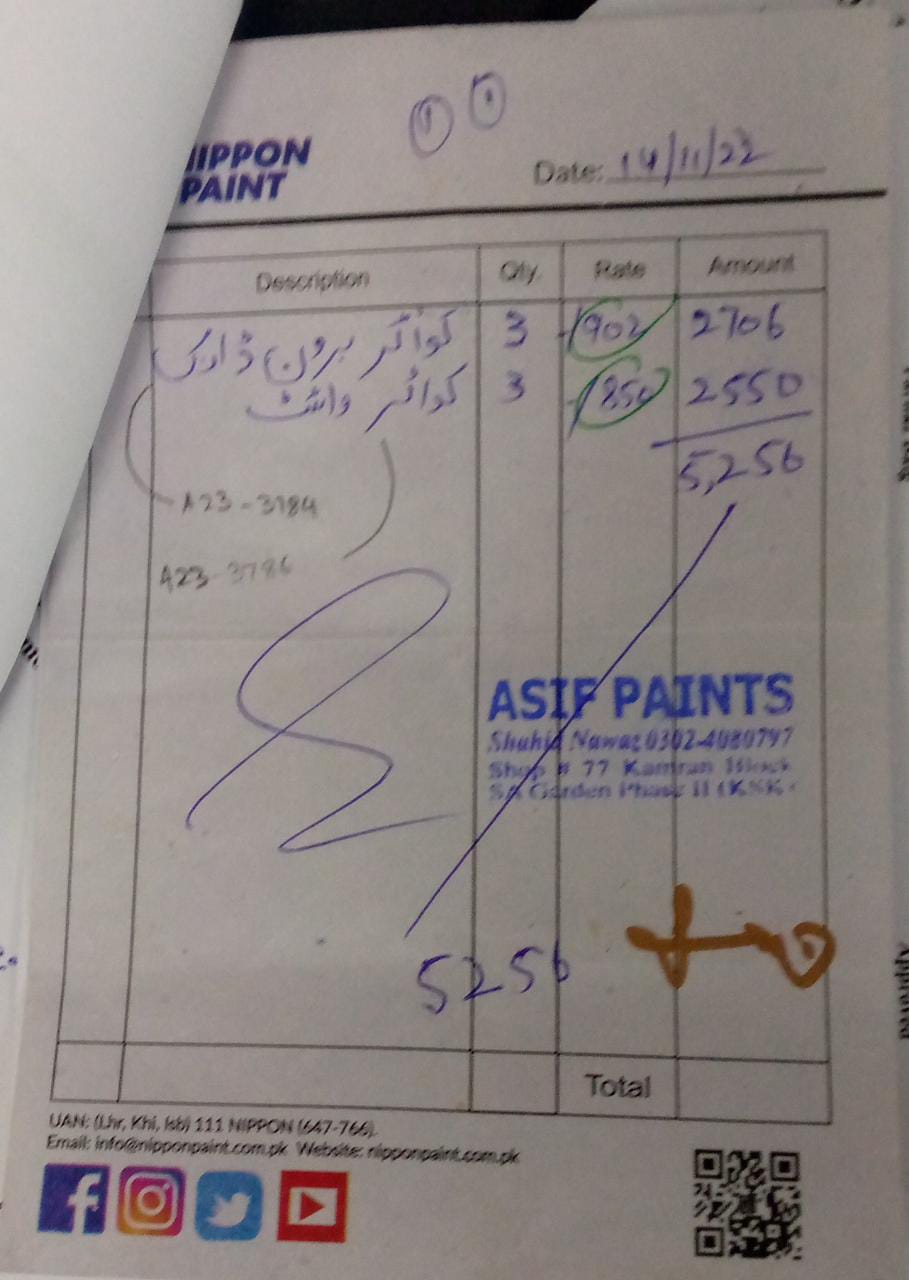 NIPPON
PAINT
Date: 14/11/22
Description Qty. Rate Amount
کوائر برون ڈارک 3 902 2706
کوائر وائٹ 3 850 2550
5,256
A23-3784
A23-3786
ASIF PAINTS
Shahid Nawaz 0302-4080797
Shop # 77 Kamran Block
SA Garden Phase II (KSK
5256
Total
UAN: (Lhr, Khi, Isb) 111 NIPPON (647-766).
Email: info@nipponpaint.com.pk Website: nipponpaint.com.pk